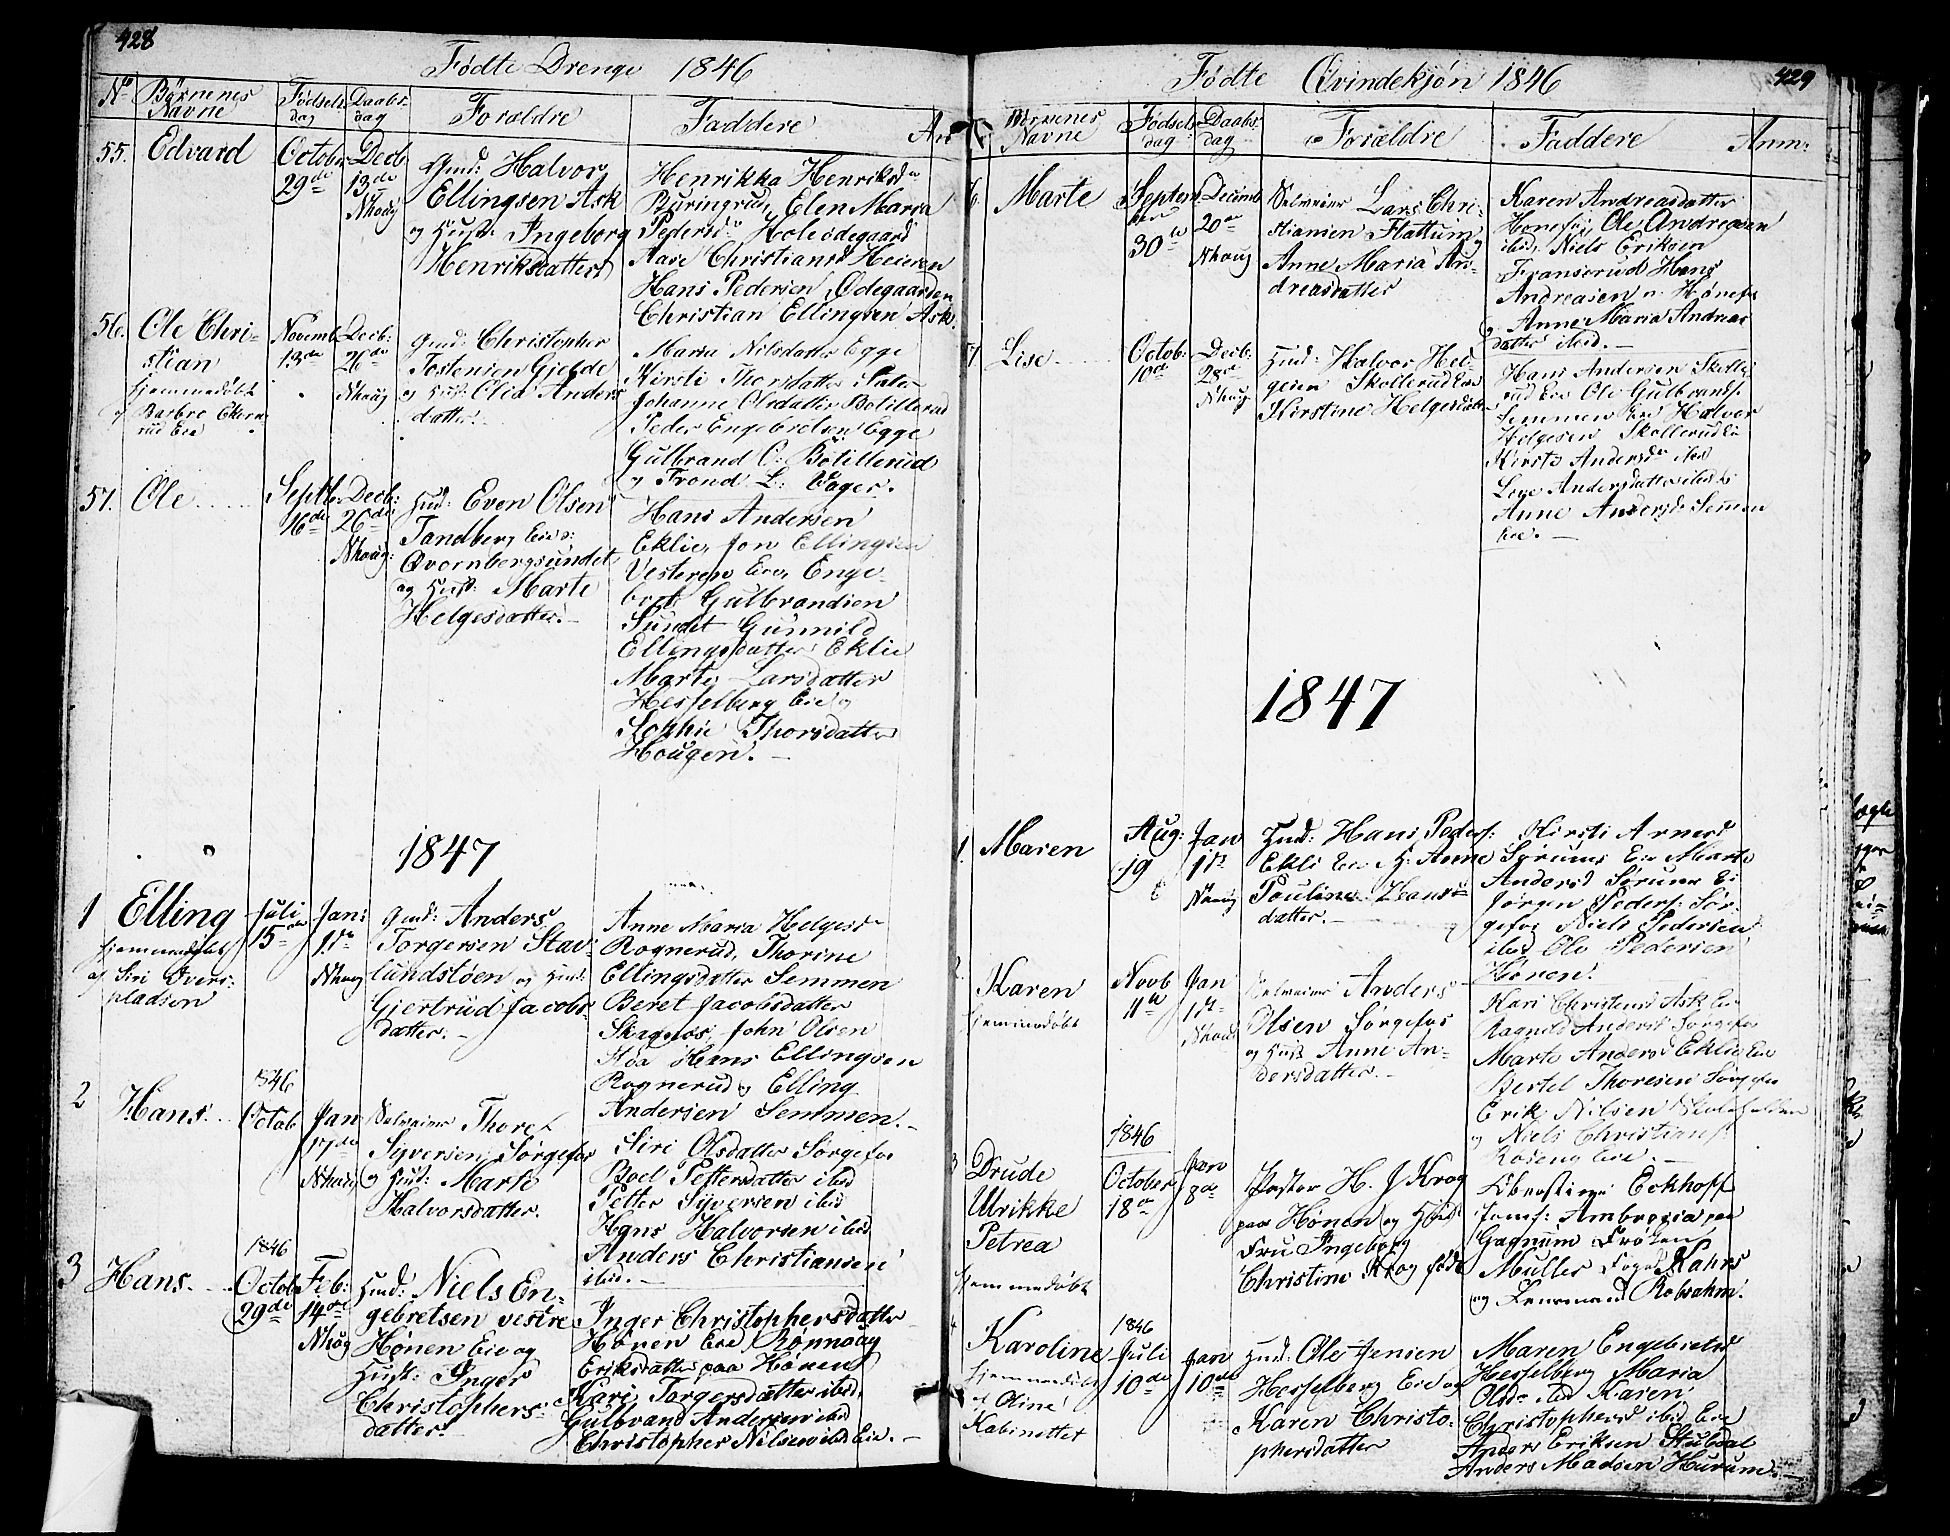 428
Fødte Drenge 1846
No
Børnenes Navne
Fødsels dag
Daabs dag
Forældre
Faddere
An
55.
Edvard
Octobr
29de
Decb
13de
Nhoug
Gmd: Halvor
Ellingsen Ask
og Hust: Ingeborg
Henriksdatter
Henrikka Henriksdr
Büringrud, Elen Maria
Pedersdr Holeødegaard
Christiansd Heieren
Hans Pedersen Ødegaarden
Christian Ellingsen Ask.
56.
Ole Chri-
stian
hjemmedøbt
Novemb
13de
Decb:
26de
Nhoug
Gmd: Christopher
Tostensen Gjelde
og Hust: Olia Anders
datter.
Maria Nilsdatter Egge
Kirsti Thorsdatter
Johanne Olsdatter Botillerud
Peder Engebretsen Egge
Gulbrand O: Botillerud
og Trond L:
57.
Ole
Septb:
16de
Decb:
26de
Nhoug:
Hmd: Even Olsen
Tandberg Eie
Qvernbergsundet
og Hust: Marte
Helgesdatter.
Hans Andersen
Eklie, Jon Ellingsen
Vesteren Eie, Enge-
bret Gulbrandsen
Sundet Gunnild
Ellingsdatter Eklie
Marte Larsdatter
Hesselberg Eie og
Sophie Thorsdatter
Hougen.
1847
1
Elling
hjemmedøbt
af Siri Øvers-
pladsen
Juli
15de
Jan:
1ste
Nhoug
Gmd: Anders
Torgersen Stav-
lundstøen og Hust:
Gjertrud Jacobs-
datter.
Anne Maria Helgesdr
Rognerud, Thorine
Ellingsdatter Semmen
Beret Jacobsdatter
Skagnæs, John Olsen
Hans Ellingsen
Rognerud og Elling
Andersen Semmen.
2
Hans
1846
Octob
Jan
17de
Nhoug
Selveier Thore
Syversen Sørgefos
og Hust: Marte
Halvorsdatter.
Siri Olsdatter Sørgefos
Boel Pettersdatter ibid
Petter Syversen ibid
Hans Halvorsen ibid
Anders Christiansen
ibid.
3
Hans
1846
Octob
29de
Feb:
14de
Nhoug
Hmd: Niels En-
gebretsen vestre
Hønen Eie og
Hust: Inger
Christophers-
datter
Inger Christophersdatter
Hønen Eie, Rønnaug
Eriksdatter paa Hønen
Kari Torgersdatter ibid,
Gulbrand Andersen ibid
Christopher Nilsen ibid Eie.
429
Fødte Qvindekjøn 1846
Børnenes Navne
Fødsels dag
Daabs dag
Forældre
Faddere
Anm:
Marte
Septem-
ber
30te
Decemb
20de
Nhoug
Selveier Lars Chri-
stiansen Flattum og
Anne Maria An-
dreasdatter
Karen Andreasdatter
Honefos Ole Andreasen
ibid. Niels Eriksen
Fransrud Hans
Andreasen n. Hønefos
og Anne Maria Andreas
datter ibid.
Lise
Octob:
10de
Decb.
28de
Nhoug
Hmd: Halvor Hel-
gesen Skollerud Eie
Kirstine Helgesdatter
Hans Andersen Skolle-
rud Eie Ole Gulbrands.
Semmen Eie Halvor
Helgesen Skollerud Ei
Kirsti Andersdr
Lise Andersdatter ibid
Anne Andersd Semmen
Eie.
1847
1.
Maren
Aug:
19
Jan
1ste
Nhoug
Hmd: Hans Peders:
Ekli Eie H: Anne
Pauline Hans-
datter.
Kirsti Arnesd
Sørum Eie Marte
Andersd Sørum Ei
Jørgen Peders: Sør-
gefos Niels Pedersen
ibid Ole Pedersen
Hønen.
2.
Karen
hjemmedøbt
Novb
11te
Jan
1ste
Nhoug
Selveier Anders
Olsen Sørgefos
og Hust Anne An-
dersdatter.
Kari Christensd Ask Eie
Ragnild Andersd Sørgefos
Marte Andersd Eklie Eie
Bertel Thoresen Sørgefos
Erik Nilsen
og Niels Christians:
Roseng Eie.
3
Drude
Ulrikke
Petrea
hjemmedøbt
1846
October
18de
Jan
8de
Pastor H. J Krog
paa Hønen og Hust
Fru Ingeborg
Christine Krog født
Eckhoff
Jomf: Ambrosia paa
Gagnum Frøken
Muller Foged Rahrs
og Lensmand Robsahm.
4
Karoline
hjemmedøbt
af Oline
Kabinettet
1846
Juli
10de
Jan
10de
Hmd: Ole Jensen
Hesselberg Eie og
Karen Christo-
phersdatter
Maren Engebretsd
Hesselberg Maria
Olsdr ibid Karen
Christophersd ibid Eie
Anders Eriksen Stubdal
Anders Madsen Hurum.